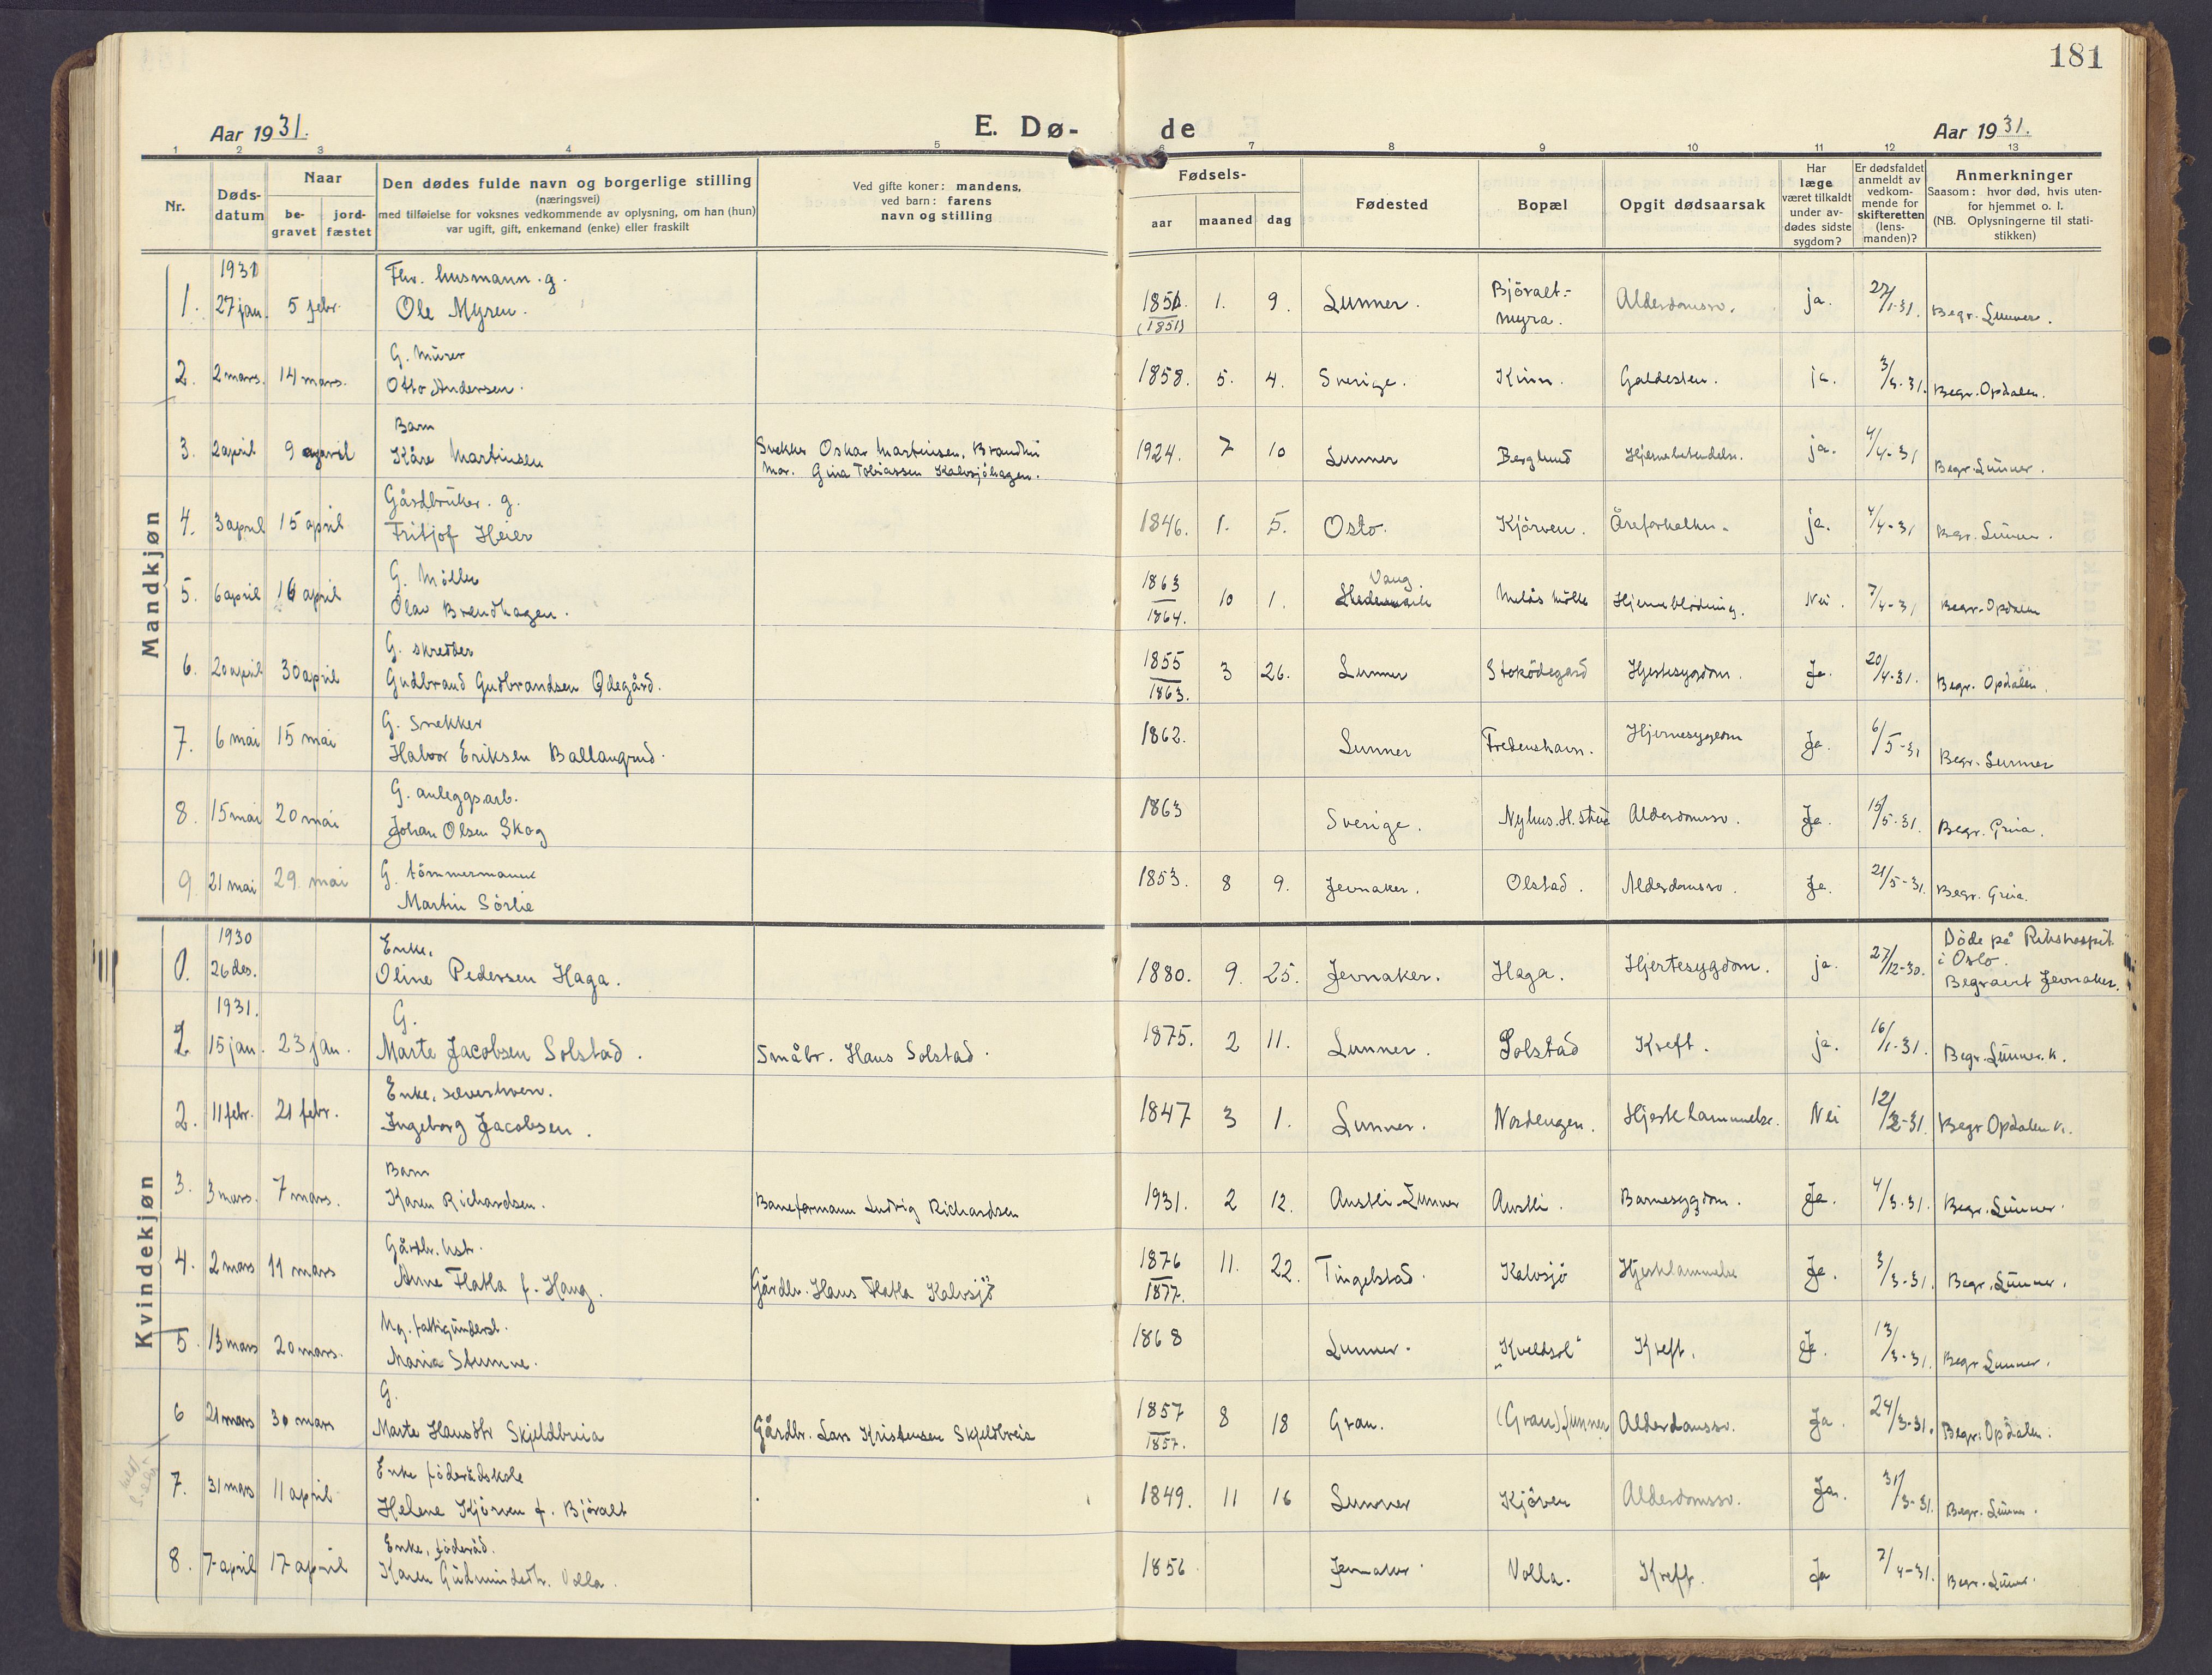 181
Aar 1931.
E. Dø-
de
Aar 1931.
1 2 3 4 5 6 7 8 9 10 11 12 13
Nr.
Døds-
datum
Naar
be-
gravet
jord-
fæstet
Den dødes fulde navn og borgerlige stilling
(næringsvei)
med tilføielse for voksnes vedkommende av oplysning, om han (hun)
var ugift, gift, enkemand (enke) eller fraskilt
Ved gifte koner: mandens,
ved barn: farens
navn og stilling
Fødsels-
aar
maaned
dag
Fødested
Bopæl
Opgit dødsaarsak
Har
læge
været tilkaldt
under av-
dødes sidste
sygdom?
Er dødsfaldet
anmeldt av
vedkom-
mende for
skifteretten
(lens-
manden)?
Anmerkninger
Saasom: hvor død, hvis uten-
for hjemmet o. l.
(NB. Oplysningerne til stati-
stikken)
Mandkjøn
1931 Fhv. husmann. g.
1. 27 jan. 5 febr. Ole Myren. 1851. (1851) 1. 9. Lunner. Björalt-
myra. Alderdomssv. ja. 27/1-31. Begr. Lunner.
G. Murer
2. 2 mars. 14 mars. Otto Andersen. 1858. 5. 4. Sverige. Galdesten. ja. 3/3-31. Begr. Opdalen.
Barn
3. 2 april 9 april Kåre Martinsen Snekker Oskar Martinsen, Brandbu 1924. 7 10 Lunner Berglund Hjernebetendelse. ja. 4/4-31 Begr. Lunner.
Mor. Gina Tobiassen Kalvsjöhagen.
Gårdbruker. g.
4. 3 april 15 april Fritjof Heier 1846. 1. 5. Oslo. Kjörven. Åreforkalkn. ja. 4/4-31 Begr. Lunner.
G. Møller
5. 6 april 16 april Olav Brendhagen. 1863 1864. 10 1. Vang Hedemark Mølle Hjerneblödning. Nei. 7/4-31 Begr. Opdalen
G. skredder
6. 20 april 30 april Gudbrand Gudbrandsen Ødegård. 1855 1863. 3 26. Lunner Stoködegard Hjertesygdom. Ja. 20/4-31. Begr. Opdalen.
G. Snekker
7. 6 mai 15 mai Halvor Eriksen Ballangrud. 1862. Lunner Fredenshavn. Hjernesygdom Ja. 6/5-31 Begr. Lunner
G. anleggsarb.
8. 15 mai 20 mai Johan Olsen Skog 1863 Sverige. Nyhus. Alderdomssv. Ja. 15/5-31. Begr. Grua.
G. tömmermann
9. 21 mai 29. mai Martin Sörlie 1853. 8 9. Jevnaker. Olstad. Alderdomssv. Ja. 21/5-31. Begr. Grua.
Kvindekjøn
1930 Enke, Döde på Rikshospit.
0. 26 des. Oline Pedersen Haga. 1880. 9. 25. Jevnaker. Haga. Hjertesygdom. ja. 27/12-30. i Oslo.
Begravet Jevnaker.
1931. G.
15 jan. 23 jan. Marte Jacobsen Solstad. Småbr. Hans Solstad. 1875. 2 11. Lunner. Solstad Kreft. ja. 16/1-31. Begr. Lunner. k.
Enke, selverhverv.
2. 11 febr. 21 febr. Ingeborg Jacobsen. 1847 3 1. Lunner. Nordengen. Hjertelammelse. Nei 12/2-31. Begr Opdalen k.
Barn
3. 3 mars. 7 mars. Karen Richardsen. Baneformann Ludvig Richardsen 1931. 2 12. Austli-Lunner Austli. Barnesygdom. Ja. 4/3-31. Begr. Lunner.
Gårdbr. hstr.
4. 2 mars 11 mars Anne Flatla f. Haug. Gårdbr. Hans Flatla Kalvsjö 1876 1877. 11. 22. Tingelstad. Kalvsjö Hjertelammelse Ja. 3/3-31. Begr. Lunner.
Ug. fattigunderst.
5. 13 mars 20 mars. Maria Stumne. 1868 Lunner. "Kveldsol" Kreft. Ja. 13/3-31. Begr Lunner.
G.
6 21 mars 30 mars Marte Hansdtr Skjeldbreia Gårdbr. Lars Kristensen Skjeldbreia 1857 1857. 8 18 Gran. (Gran) Lunner Alderdomssv. Ja. 24/3-31. Begr. Opdalen.
Enke föderådskone
7. 31 mars 11 april Helene Kjörven f. Björalt 1849. 11 16 Lunner Kjörven Alderdomssv. Ja. 31/3-31. Begr. Lunner.
Enke, föderåd.
8. 7 april 17 april Karen Gudmundsdtr. Volla. 1856 Jevnaker. Volla. Kreft. Ja 7/4-31. Begr. Lunner.